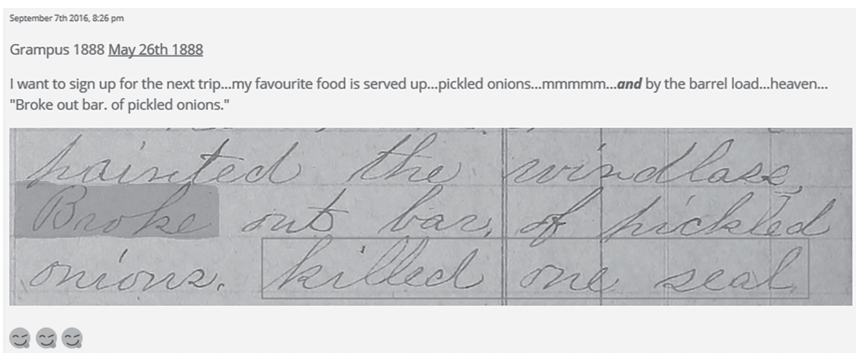 September 7th 2016, 8:26 pm
Grampus 1888 May 26th 1888
I want to sign up for the next trip...my favourite food is served up...pickled onions...mmmmm...and by the barrel load...heaven...
"Broke out bar. of pickled onions."
painted the windlass,
Broke out bar, of pickled
onions. killed one seal